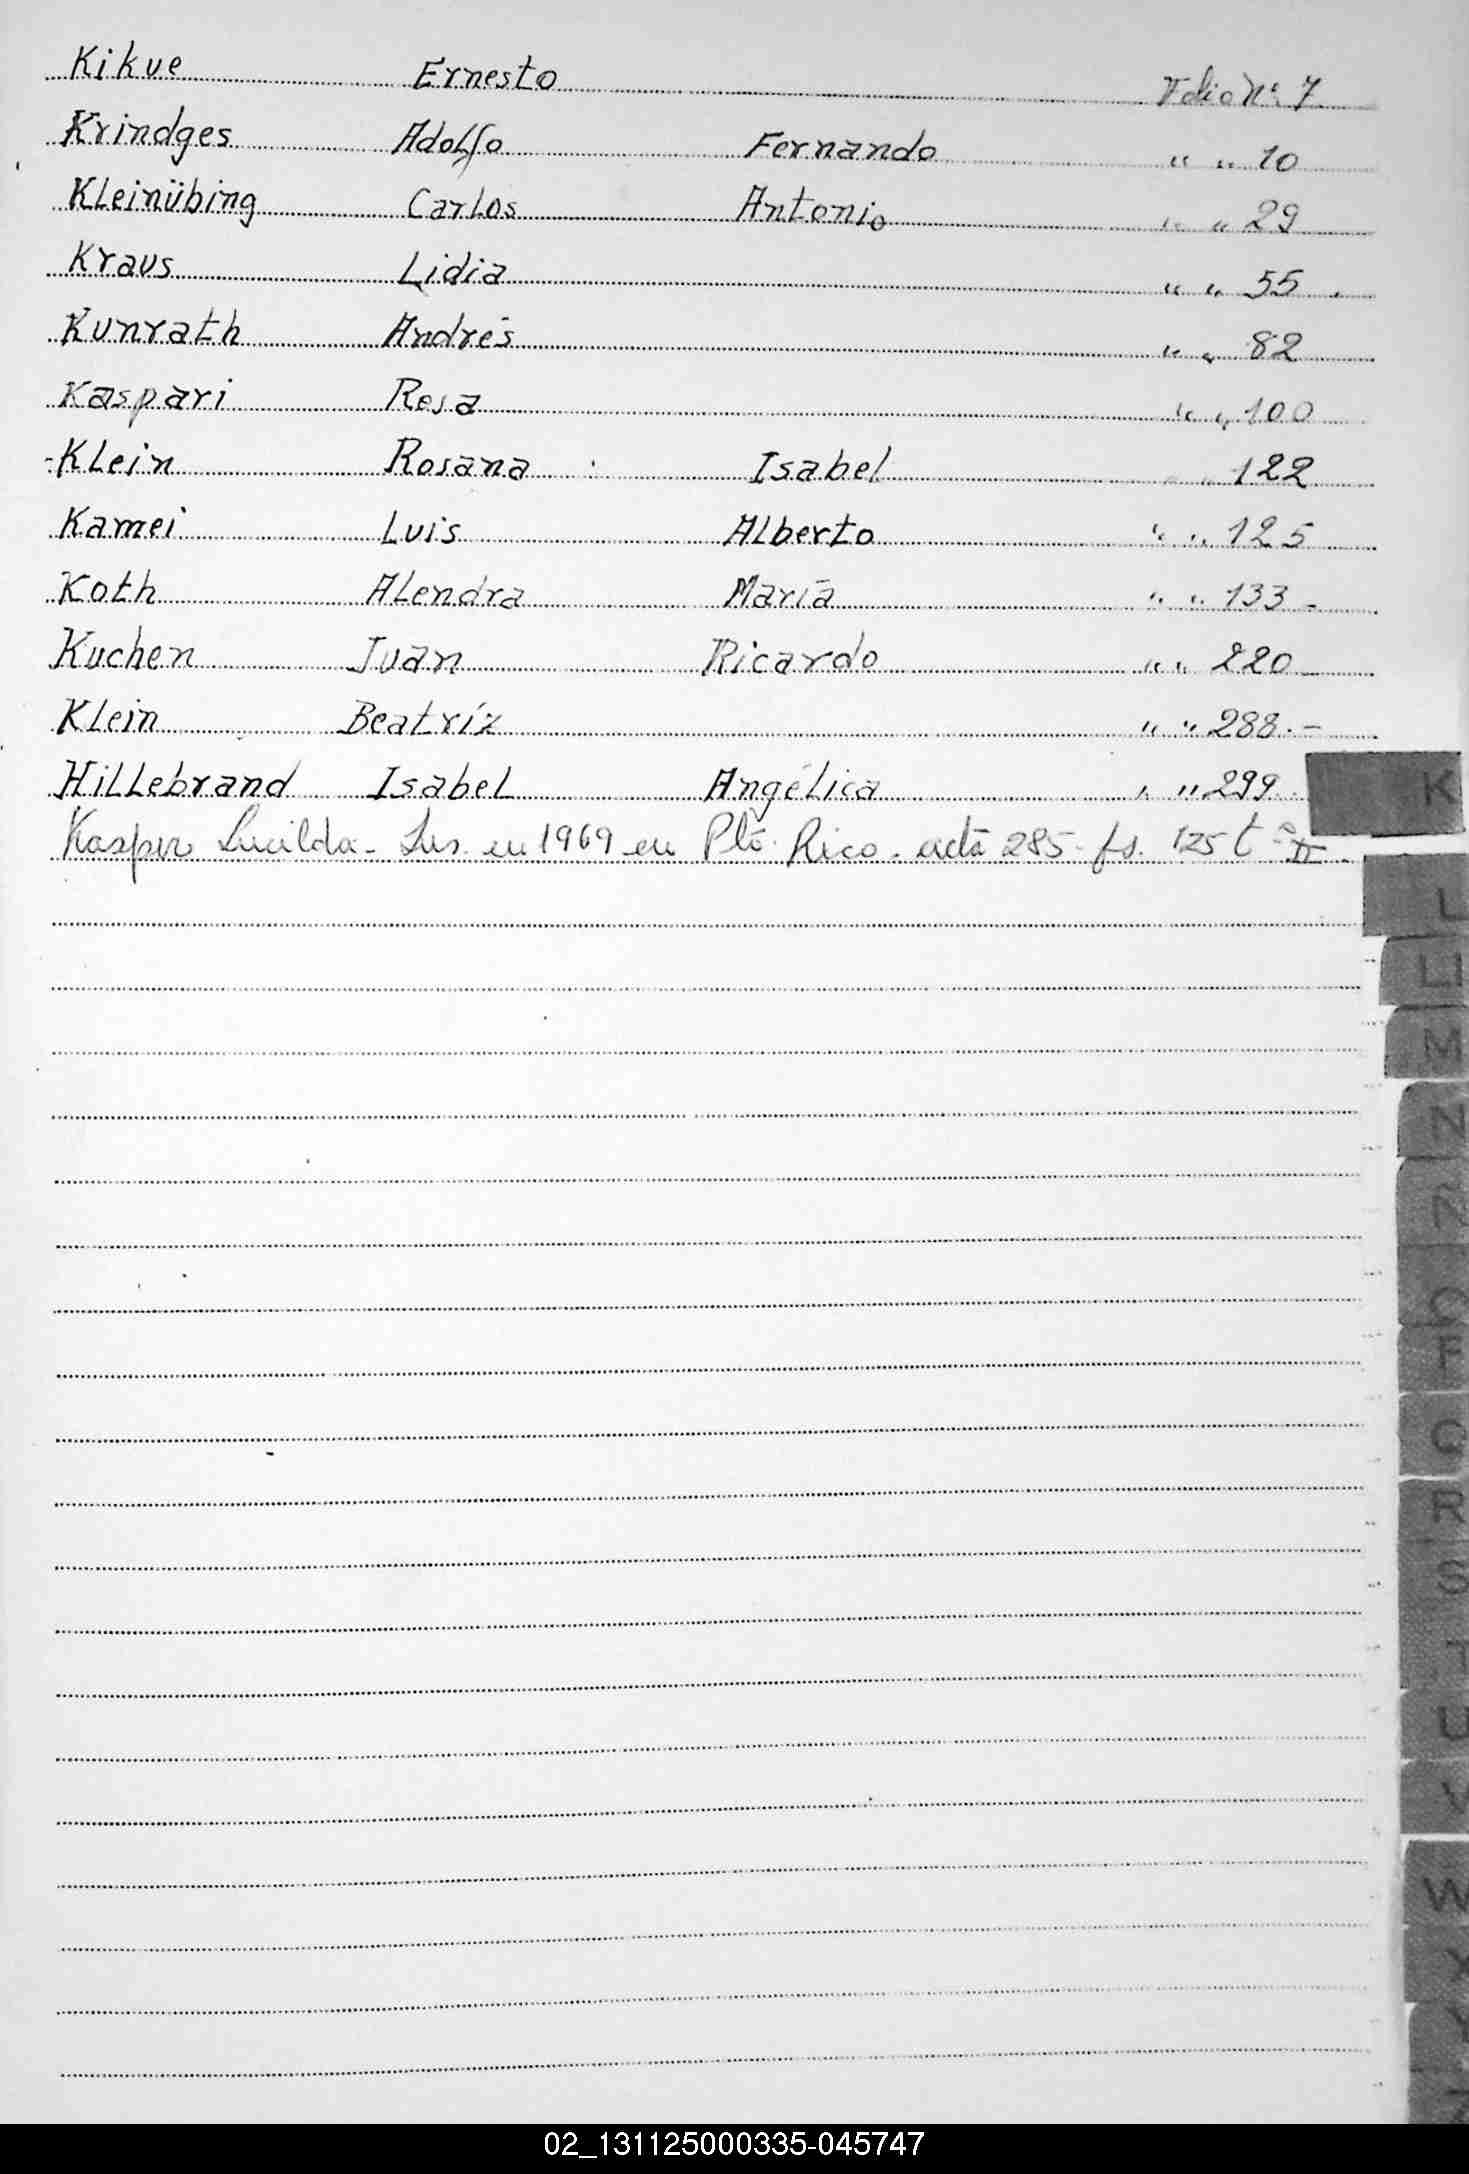 Kikue Ernesto Folio Nº 7
Krindges Adolfo Fernando " " 10
Kleinübing Carlos Antonio " " 29
Kraus Lidia " " 55
Kunrath Andrés " " 82
Kaspari Rosa " " 100
Klein Rosana Isabel " " 122
Kamei Luis Alberto " " 125
Koth Alendra María " " 133 -
Kuchen Juan Ricardo " " 220
Klein Beatríz " " 288.-
Hillebrand Isabel Angélica " " 299.
Kasper Lucilda - Ins. en 1969 en Pto. Rico. acta 285- fs. 125 tº II.
K
L
Ll
M
N
Ñ
O
P
Q
R
S
T
U
V
W
X
Y
Z
02_131125000335-045747